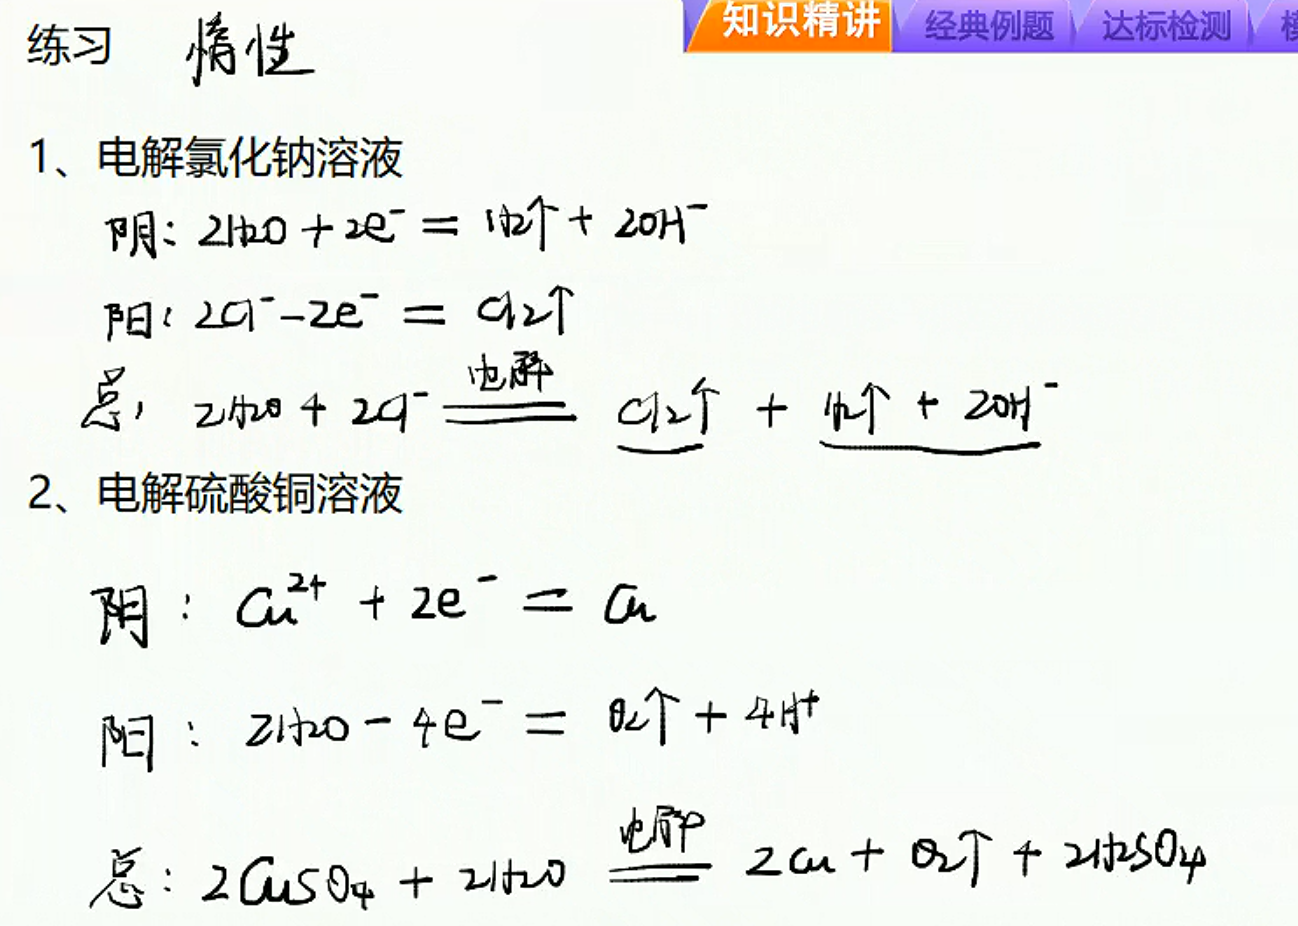 知识精讲 经典例题 达标检测
练习 惰性
1、电解氯化钠溶液
阴：2H2O + 2e⁻ = H2↑ + 2OH⁻
阳：2Cl⁻ - 2e⁻ = Cl2↑
总：2H2O + 2Cl⁻ 电解 Cl2↑ + H2↑ + 2OH⁻
2、电解硫酸铜溶液
阴：Cu²⁺ + 2e⁻ = Cu
阳：2H2O - 4e⁻ = O2↑ + 4H⁺
总：2CuSO4 + 2H2O 电解 2Cu + O2↑ + 2H2SO4